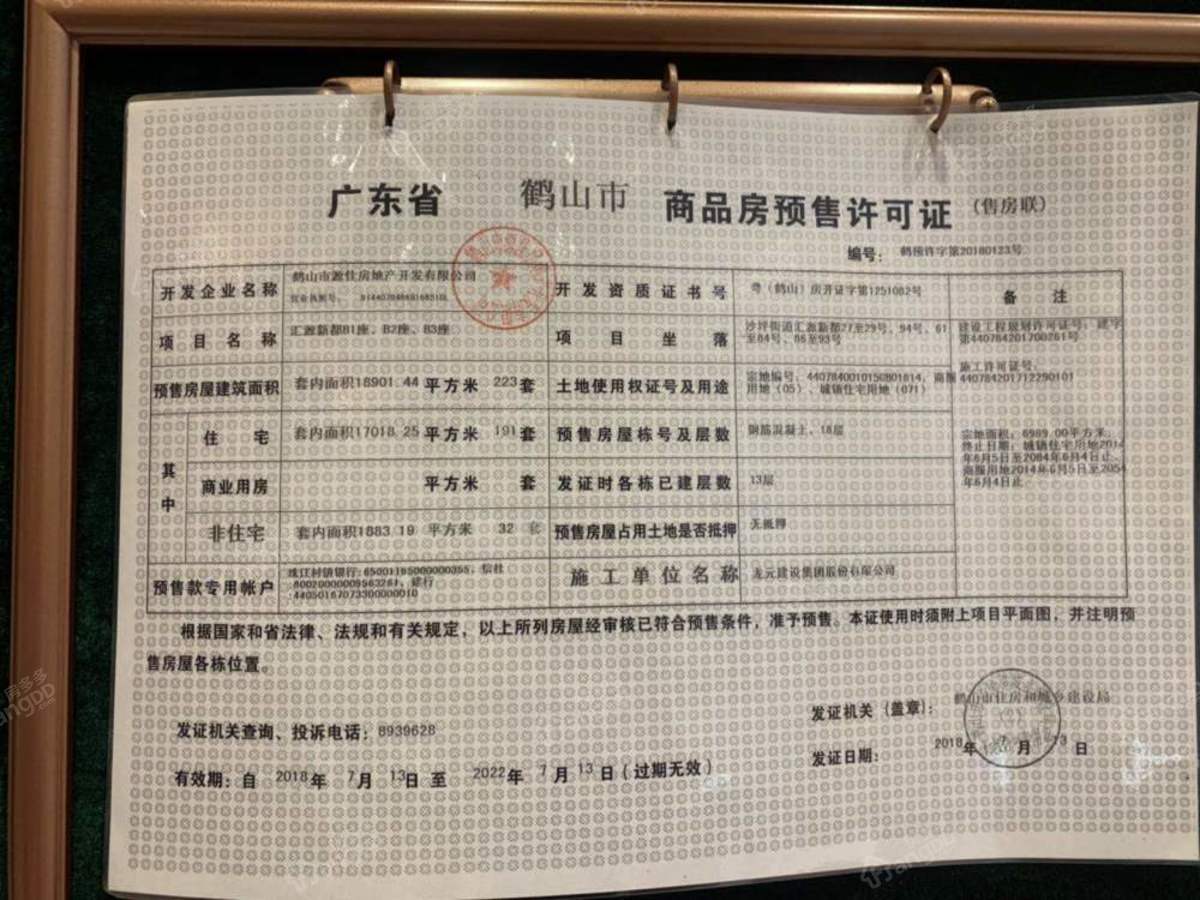 广东省 鹤山市 商品房预售许可证 (售房联)
编号: 鹤预许字第20180123号
开发企业名称 鹤山市源佳房地产开发有限公司 开发资质证书号 粤(鹤山)房开证字第1251082号 备注
营业执照号:
项目名称 汇源新都B1座、B2座、B3座 项目坐落 沙坪街道汇源新都27至29号、94号、61至84号、86至93号
建设工程规划许可证号: 建字第440784201700261号
施工许可证号: 440784201712290101
预售房屋建筑面积 套内面积18901.44平方米 223套 土地使用权证号及用途 宗地编号: 4407840010150801814, 商服用地(05)、城镇住宅用地(071)
其中 住宅 套内面积17018.25平方米 191套 预售房屋栋号及层数 钢筋混凝土, 18层
宗地面积: 6989.00平方米,
终止日期: 城镇住宅用地2014
年6月5日至2084年6月4日止、
商服用地2014年6月5日至2054
年6月4日止
商业用房 平方米 套 发证时各栋已建层数 13层
非住宅 套内面积1883.19 平方米 32 套 预售房屋占用土地是否抵押 无抵押
预售款专用帐户 珠江村镇银行:65001185000000355, 信社 施工单位名称 龙元建设集团股份有限公司
:80020000009563261, 建行
:44050167073300000010
根据国家和省法律、法规和有关规定，以上所列房屋经审核已符合预售条件，准予预售。本证使用时须附上项目平面图，并注明预
售房屋各栋位置。
发证机关查询、投诉电话: 8939628
发证机关(盖章): 鹤山市住房和城乡建设局
有效期: 自 2018年 7月 13日 至 2022年 7月13日(过期无效)
发证日期: 2018年 7月 13日
房多多
FangDD